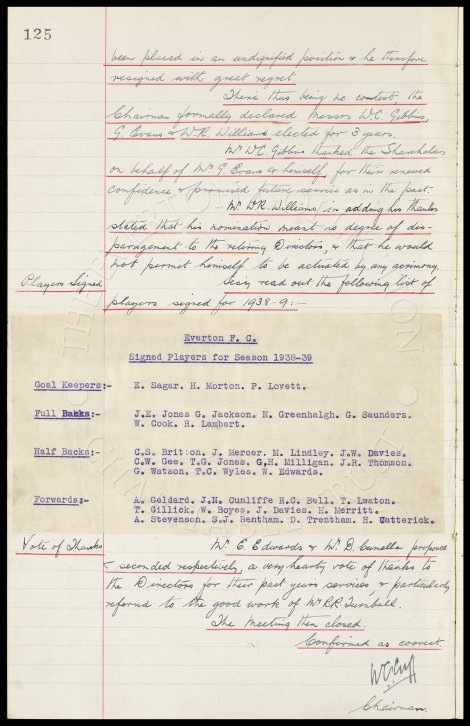 125
been placed in an undignified position & he therefore
resigned with great regret.
There thus being no contest the
Chairman formally declared Messrs W.C. Gibbins,
G. Evans & W.R. Williams elected for 3 years.
Mr W.C. Gibbins thanked the Shareholders
on behalf of Mr G. Evans & himself for their renewed
confidence & promised future service as in the past.
Mr W.R. Williams in adding his thanks
stated that his nomination meant no degree of dis-
paragement to the retiring Directors, & that he would
not permit himself to be actuated by any acrimony.
Players Signed
Secy read out the following list of
players signed for 1938-9:-
Everton F. C.
Signed Players for Season 1938-39
Goal Keepers:- E. Sagar. H. Morton. P. Lovett.
Full Backs:- J.E. Jones G. Jackson. N. Greenhalgh. G. Saunders.
W. Cook. R. Lambert.
Half Backs:- C.S. Britton. J. Mercer. M. Lindley. J.W. Davies.
C.W. Gee. T.G. Jones. G.H. Milligan. J.R. Thomson.
G. Watson. T.C. Wyles. W. Edwards.
Forwards:- A. Geldard. J.N. Cunliffe R.C. Bell. T. Lwaton.
T. Gillick. W. Boyes. J. Davies. H. Merritt.
A. Stevenson. S.J. Bentham. D. Trentham. H. Catterick.
Vote of Thanks
Mr E. Edwards & Mr B. Cunella proposed
& seconded respectively, a very hearty vote of thanks to
the Directors for their past years services, & particularly
referred to the good work of Mr R.R. Turnbull.
The Meeting then closed.
Confirmed as correct
W.C. Cuff
Chairman.